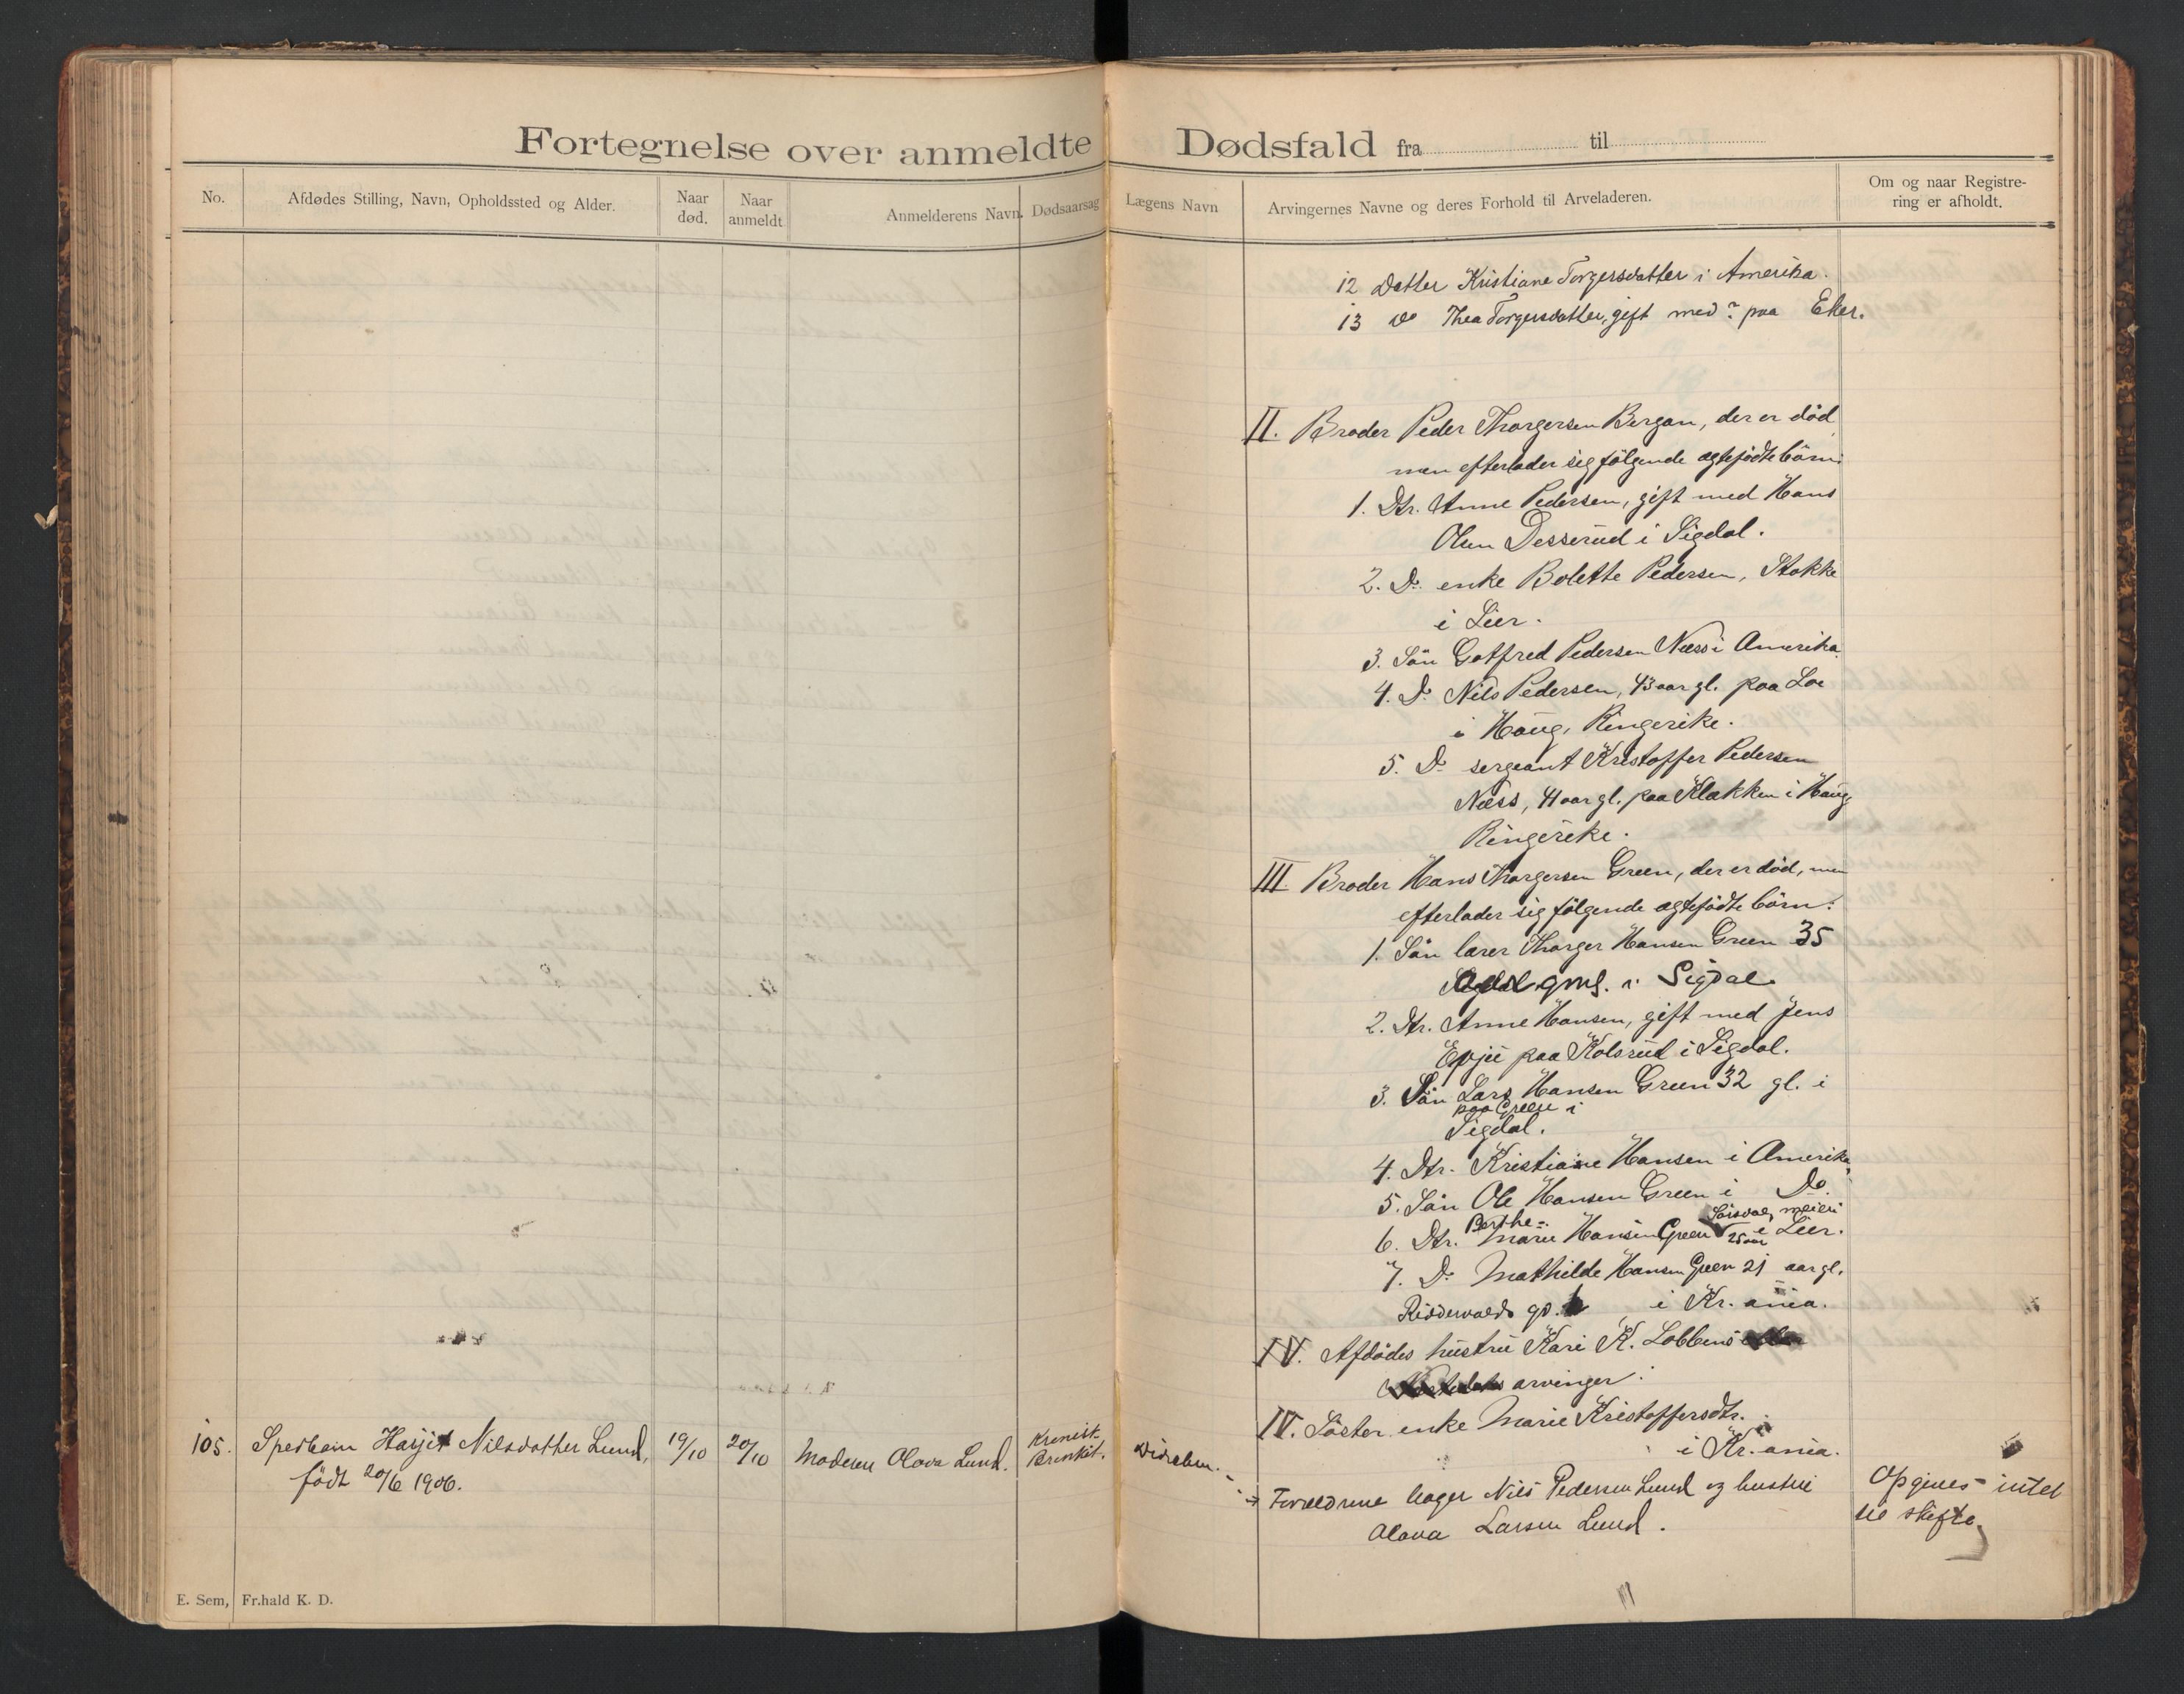 Fortegnelse over anmeldte Dødsfald fra til
No.
Afdødes Stilling, Navn, Opholdssted og Alder.
Naar død.
Naar anmeldt
Anmelderens Navn.
Dødsaarsag
Lægens Navn
Arvingernes Navne og deres Forhold til Arveladeren.
Om og naar Registre-
ring er afholdt.
12 Datter Kristiane Torgersdatter i Amerika.
13 do Thea Torgersdatter, gift med ? paa Eker.
II. Broder Peder Thorgersen Bergan, der er död
men efterlader sig følgende ægtefödte börn:
1. Dtr. Anne Pedersen, gift med Hans
Olsen Desserud i Sigdal.
2. Do enke Bolette Pedersen, Stokke
i Lier.
3. Sön Gotfred Pedersen Næss i Amerika.
4. Do Nils Pedersen, 43 aar gl. paa Loe
i Haug, Ringerike.
5. Do sergeant Kristoffer Pedersen
Næss, 41 aar gl. paa Klækken i Haug
Ringerike.
III. Broder Hans Thorgersen Green, der er död, men
efterlader sig følgende ægtefödte börn:
1. Sön lærer Thorger Hansen Green 35
gml. i Sigdal
2. Dtr. Anne Hansen, gift med Jens
Epju paa Kolsrud i Sigdal.
3. Sön Lars Hansen Green 32 gl. i
paa Green i
Sigdal.
4. Dtr. Kristiane Hansen i Amerika.
5. Sön Ole Hansen Green i Do.
meieri
6. Dtr. Berthe Marie Hansen Green 25 aar i Lier.
7. Do Mathilde Hansen Green 21 aar gl.
Ridderwolds gd. i Kr.ania.
IV. Afdødes hustru Kari K. Lobbens
arvinger.
IV. Söster enke Marie Kristoffersdtr.
i Kr.ania.
105. Spedbarn Harjit Nilsdatter Lund, 19/10 20/10 Moderen Olava Lund. Kronisk Bronkit.
født 20/6 1906.
Forældrene bager Nils Pedersen Lund og hustru Opgives intet
Olava Larsen Lund. til skifte.
E. Sem, Fr.hald K. D.